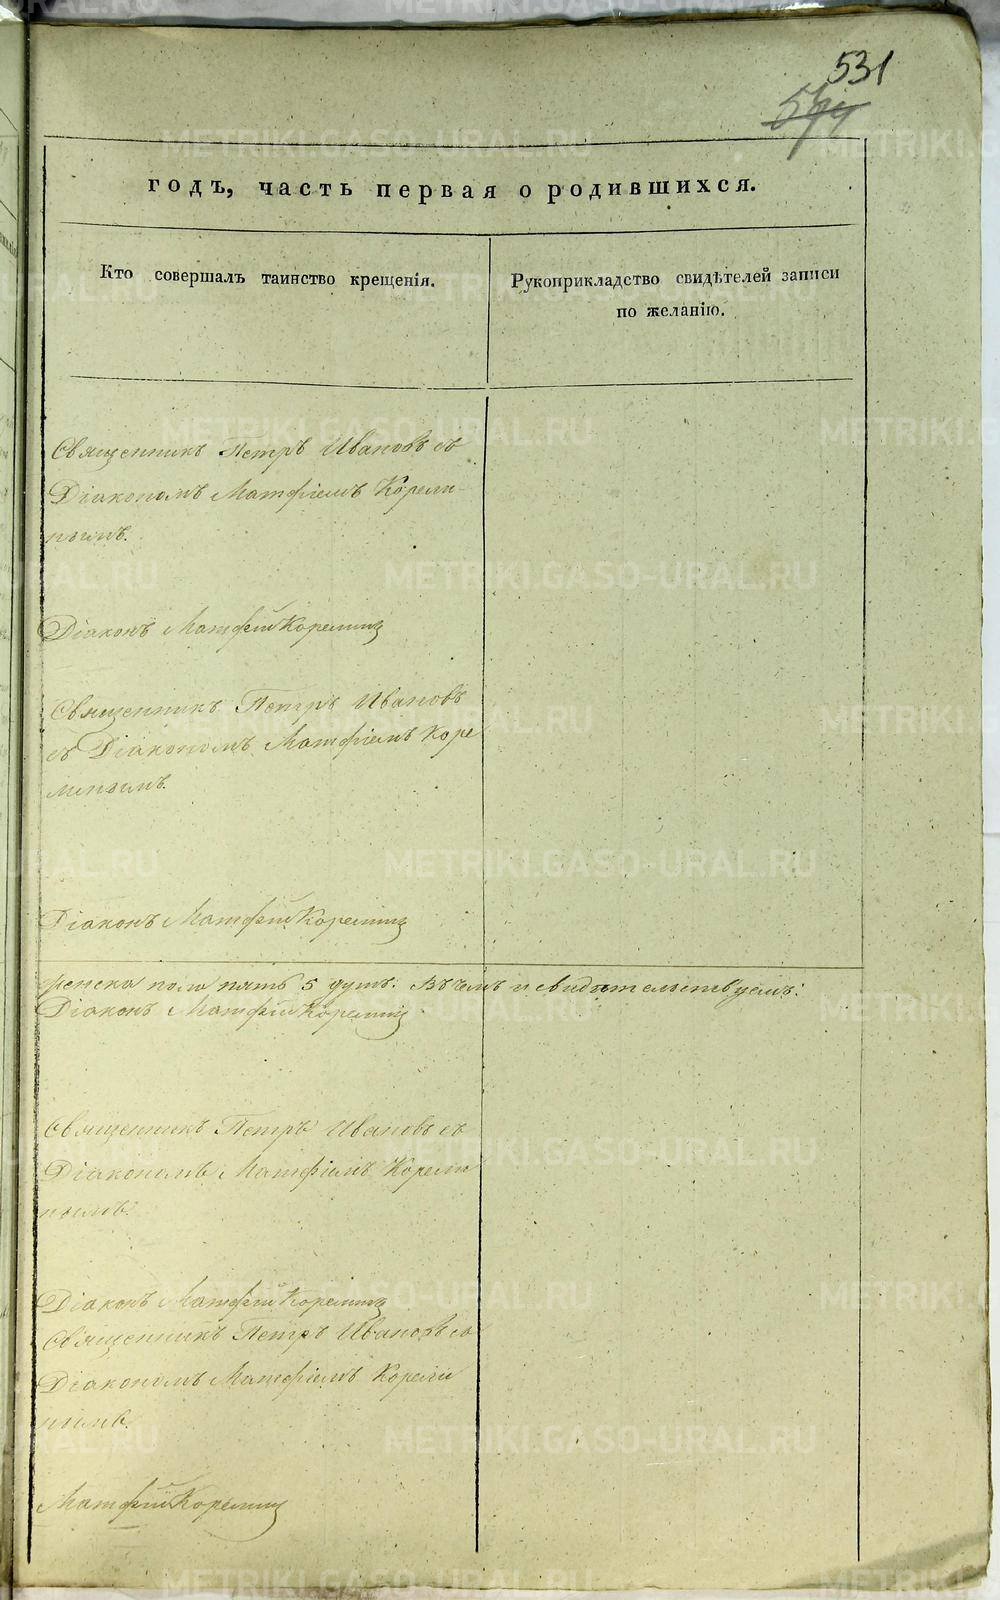 531
годъ, часть первая о родившихся.
Кто совершалъ таинство крещенія.
Рукоприкладство свидѣтелей записи
по желанію.
Священникъ Петръ Ивановъ съ
Діакономъ Матфіемъ Корели-
нымъ.
Діаконъ Матфій Корелинъ
Священникъ Петръ Ивановъ
съ Діакономъ Матфіемъ Коре
линымъ.
Діаконъ Матфій Корелинъ
женска пола пять 5 душъ. Въ чемъ и свидѣтельствуемъ:
Діаконъ Матфій Корелинъ
Священникъ Петръ Ивановъ съ
Діакономъ Матфіемъ Корели
нымъ.
Діаконъ Матфій Корелинъ
Священникъ Петръ Ивановъ съ
Діакономъ Матфіемъ Корели
нымъ.
Матфій Корелинъ
METRIKI.GASO-URAL.RU